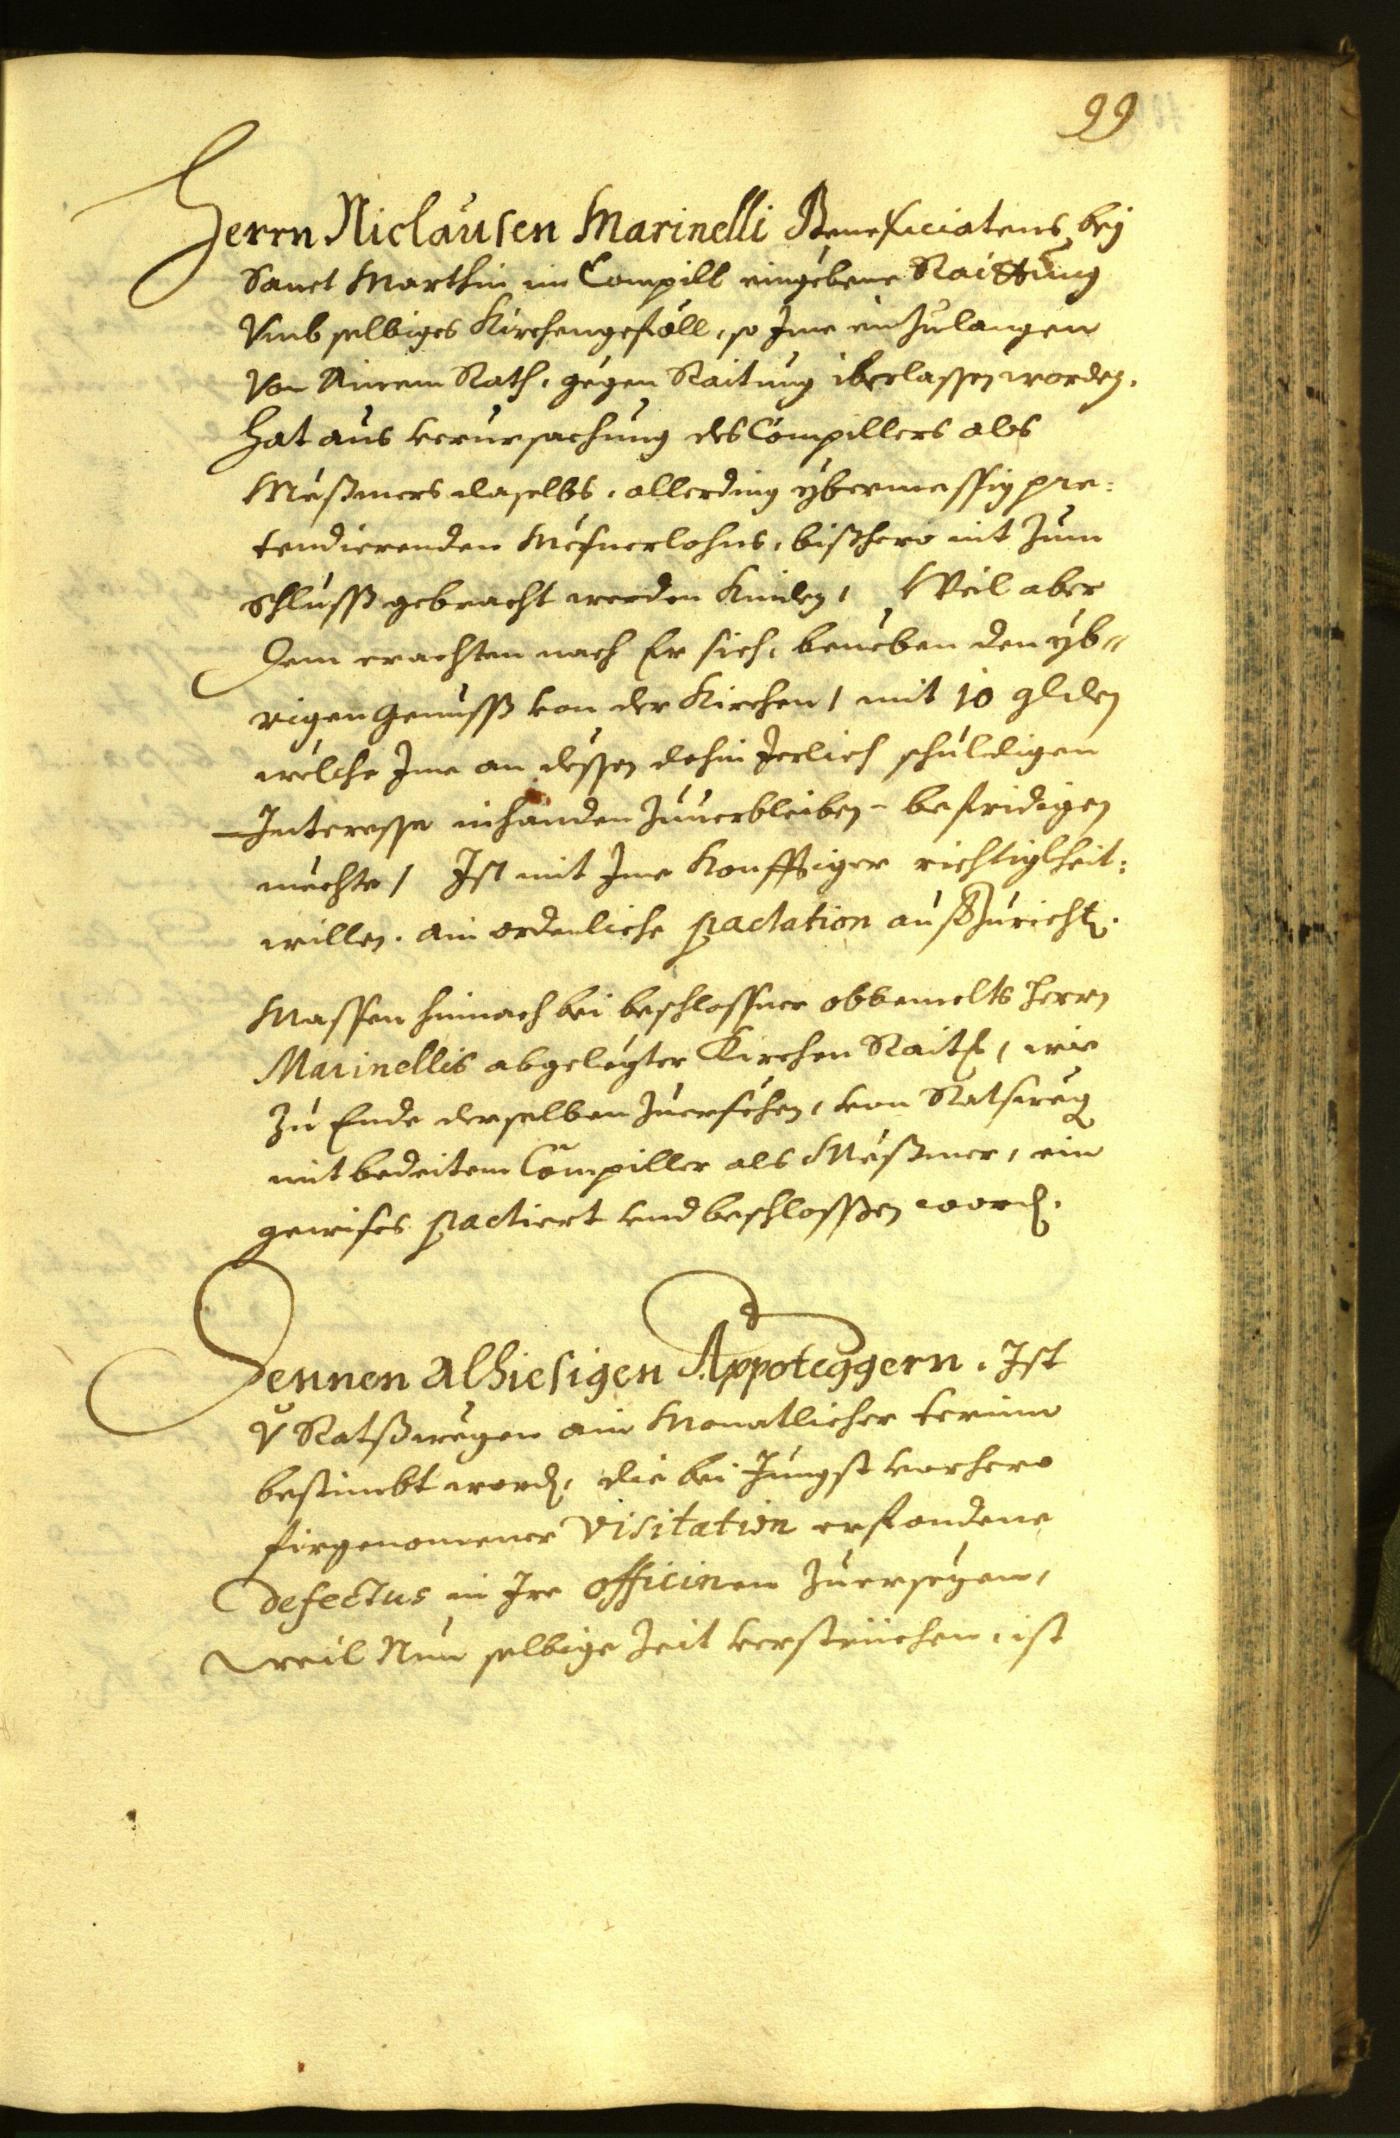 99
Herrn Niclausen Marinelli Beneficiatens bey
Sanct Marthin im Compill eingebene Raittung
Vmb selbiges Kirchengeföll, so Ime einzulangen
Von Ainem Rath, gegen Raitung iberlassen worden.
Hat aus verursachung des Compillers als
Meßmers daselbs, allerding ybermessig pre:
tendierenden Mesnerlohns, bißhero nit zum
schluss gebracht werden kinden, Weil aber
Dem erachten nach Er sich, beneben den yb-
rigen Genuss von der Kirchen, mit 10 glden
welche Ime an dessen dahin Jerlich schuldigen
Interesse inhanden zuuerbleiben - befridigen
mechte, Ist mit Ime konfftiger richtigkheit:
willen. ain ordenliche pactation aufzuricht.
Massen hinnach bei beschlossner obbemelts Herrn
Marinellis abgelegter Kirchen Rait, wie
zu Ende derselben zuersehen, von Ratsweg
mit bedeitem Compiller als Meßmer, ein
gewises pactiert vnd beschlossen word.
Dennen alhiesigen Appoteggern. Ist
V Ratßwegen ain Monatlicher termin
bestimbt word, die bei Jungst vorhero
firgenomener Visitation erfondene
defectus in Ire officinen zuersezen,
weil Nun selbige Zeit verstrichen, ist